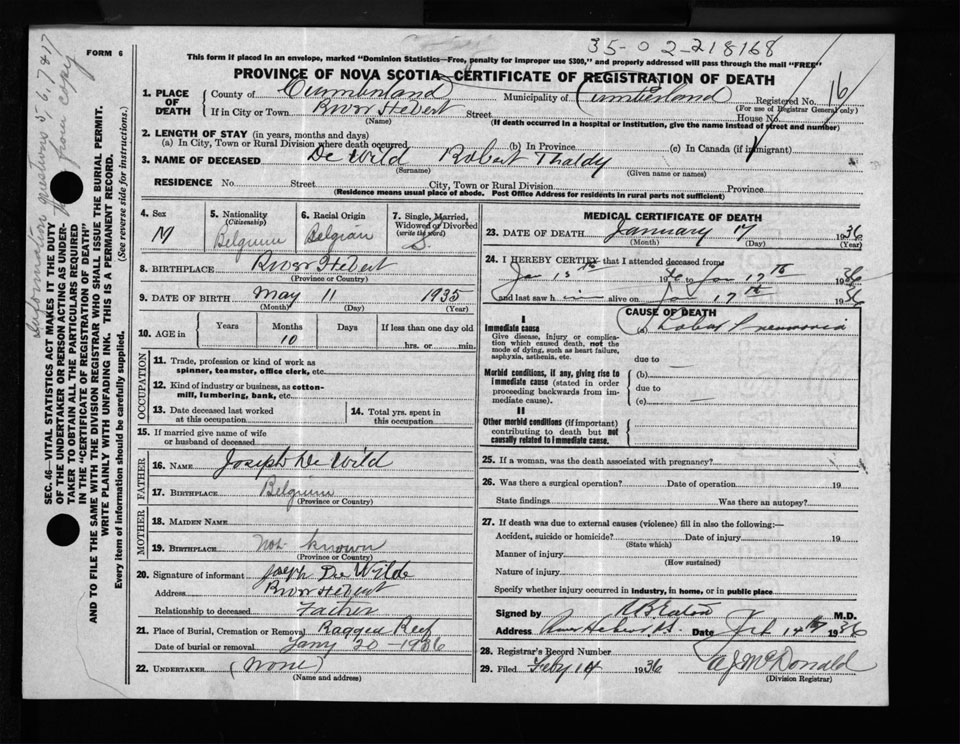 35-02-218168
FORM 6
This form if placed in an envelope, marked "Dominion Statistics—Free, penalty for improper use $300," and properly addressed will pass through the mail "FREE"
PROVINCE OF NOVA SCOTIA—CERTIFICATE OF REGISTRATION OF DEATH
1. PLACE OF DEATH
County of Cumberland Municipality of Cumberland Registered No. 16
(For use of Registrar General only)
If in City or Town River Hebert Street House No.
(Name) (If death occurred in a hospital or institution, give the name instead of street and number)
2. LENGTH OF STAY (in years, months and days)
(a) In City, Town or Rural Division where death occurred (b) In Province (c) In Canada (if immigrant)
3. NAME OF DECEASED De Wild Robert Thaldy
(Surname) (Given name or names)
RESIDENCE No. Street City, Town or Rural Division Province
(Residence means usual place of abode. Post Office Address for residents in rural parts not sufficient)
4. Sex
M
5. Nationality
(Citizenship)
Belgium
6. Racial Origin
Belgian
7. Single, Married, Widowed or Divorced
(write the word)
S.
8. BIRTHPLACE River Hebert
(Province or Country)
9. DATE OF BIRTH May 11 1935
(Month) (Day) (Year)
10. AGE in
Years Months Days If less than one day old
10 hrs. or min.
OCCUPATION
11. Trade, profession or kind of work as
spinner, teamster, office clerk, etc.
12. Kind of industry or business, as cotton-
mill, lumbering, bank, etc.
13. Date deceased last worked
at this occupation
14. Total yrs. spent in
this occupation
15. If married give name of wife
or husband of deceased
FATHER
16. NAME Joseph De Wild
17. BIRTHPLACE Belgium
(Province or Country)
MOTHER
18. MAIDEN NAME
19. BIRTHPLACE Not known
(Province or Country)
20. Signature of informant Joseph De Wilde
Address River Hebert
Relationship to deceased Father
21. Place of Burial, Cremation or Removal Ragged Reef
Date of burial or removal Jany 20-1936
22. UNDERTAKER (None)
(Name and address)
MEDICAL CERTIFICATE OF DEATH
23. DATE OF DEATH January 17 1936
(Month) (Day) (Year)
24. I HEREBY CERTIFY that I attended deceased from
Jan 15th 1936 to Jan 17th 1936
and last saw him alive on Jan 17th 1936
CAUSE OF DEATH
I
Immediate cause
Give disease, injury or complica-
tion which caused death, not the
mode of dying, such as heart failure,
asphyxia, asthenia, etc.
(a) Lobar Pneumonia
due to
Morbid conditions, if any, giving rise to
immediate cause (stated in order
proceeding backwards from im-
mediate cause).
(b)
due to
(c)
II
Other morbid conditions (if important)
contributing to death but not
causally related to immediate cause.
25. If a woman, was the death associated with pregnancy?
26. Was there a surgical operation? Date of operation 19
State findings Was there an autopsy?
27. If death was due to external causes (violence) fill in also the following:—
Accident, suicide or homicide? Date of injury 19
(State which)
Manner of injury
(How sustained)
Nature of injury
Specify whether injury occurred in industry, in home, or in public place
Signed by M.D.
Address River Hebert N.S. Date Feb 14th 1936
28. Registrar's Record Number
29. Filed Feby 14 1936 A J McDonald
(Division Registrar)
SEC. 46—VITAL STATISTICS ACT MAKES IT THE DUTY
OF THE UNDERTAKER OR PERSON ACTING AS UNDER-
TAKER TO OBTAIN ALL THE PARTICULARS REQUIRED
IN THE "CERTIFICATE OF REGISTRATION OF DEATH"
AND TO FILE THE SAME WITH THE DIVISION REGISTRAR WHO SHALL ISSUE THE BURIAL PERMIT.
WRITE PLAINLY WITH UNFADING INK. THIS IS A PERMANENT RECORD.
Every item of information should be carefully supplied. (See reverse side for instructions.)
Information questions 5, 6, 7 & 17
from copy